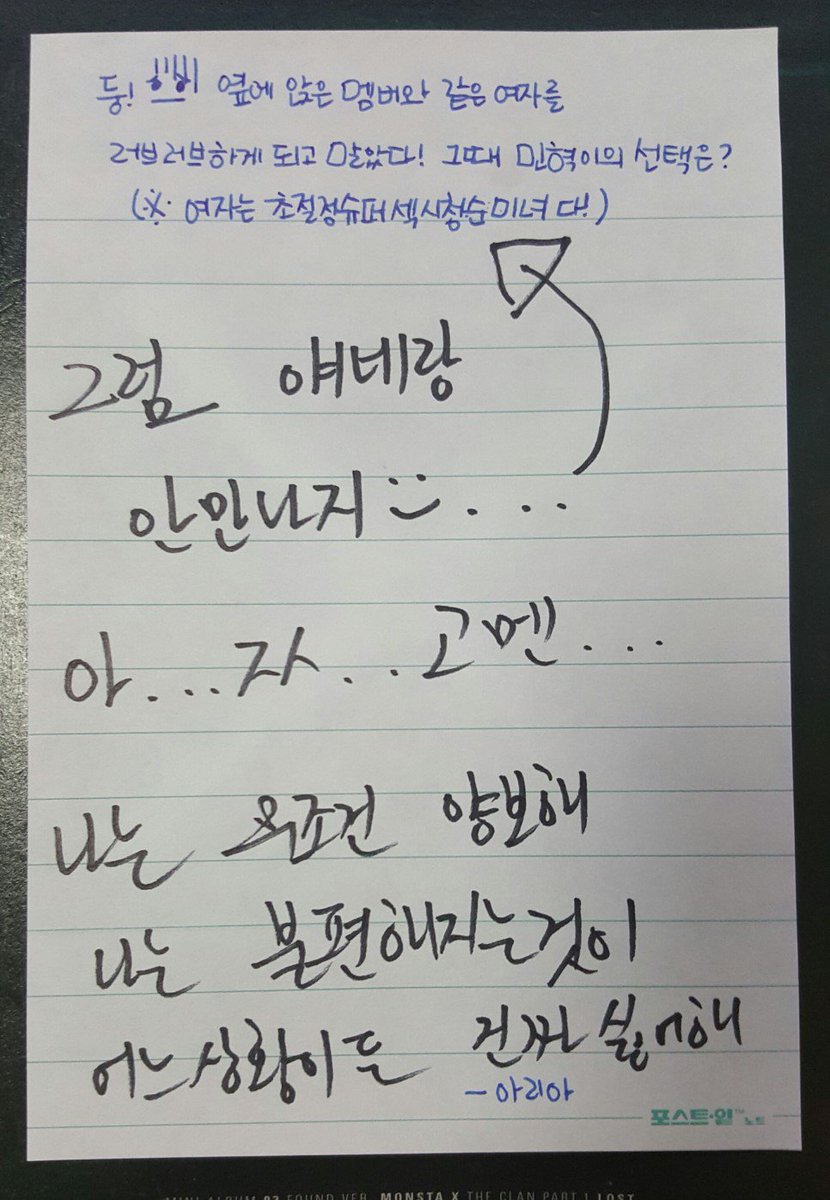 둥! 쁘띠 옆에 앉은 멤버와 같은 여자를
러브러브하게 되고 말았다! 그때 민혁이의 선택은?
(※ 여자는 초절정슈퍼섹시청순미녀다!)
그럼 얘네랑
안만나지 :) . . .
아...자...고멘...
나는 무조건 양보해
나는 불편해지는것이
어느상황이든 진짜 싫어해
-아리아
포스트·잇™노트
MINI ALBUM 02 FOUND VER. MONSTA X THE CLAN PART 1 LOST